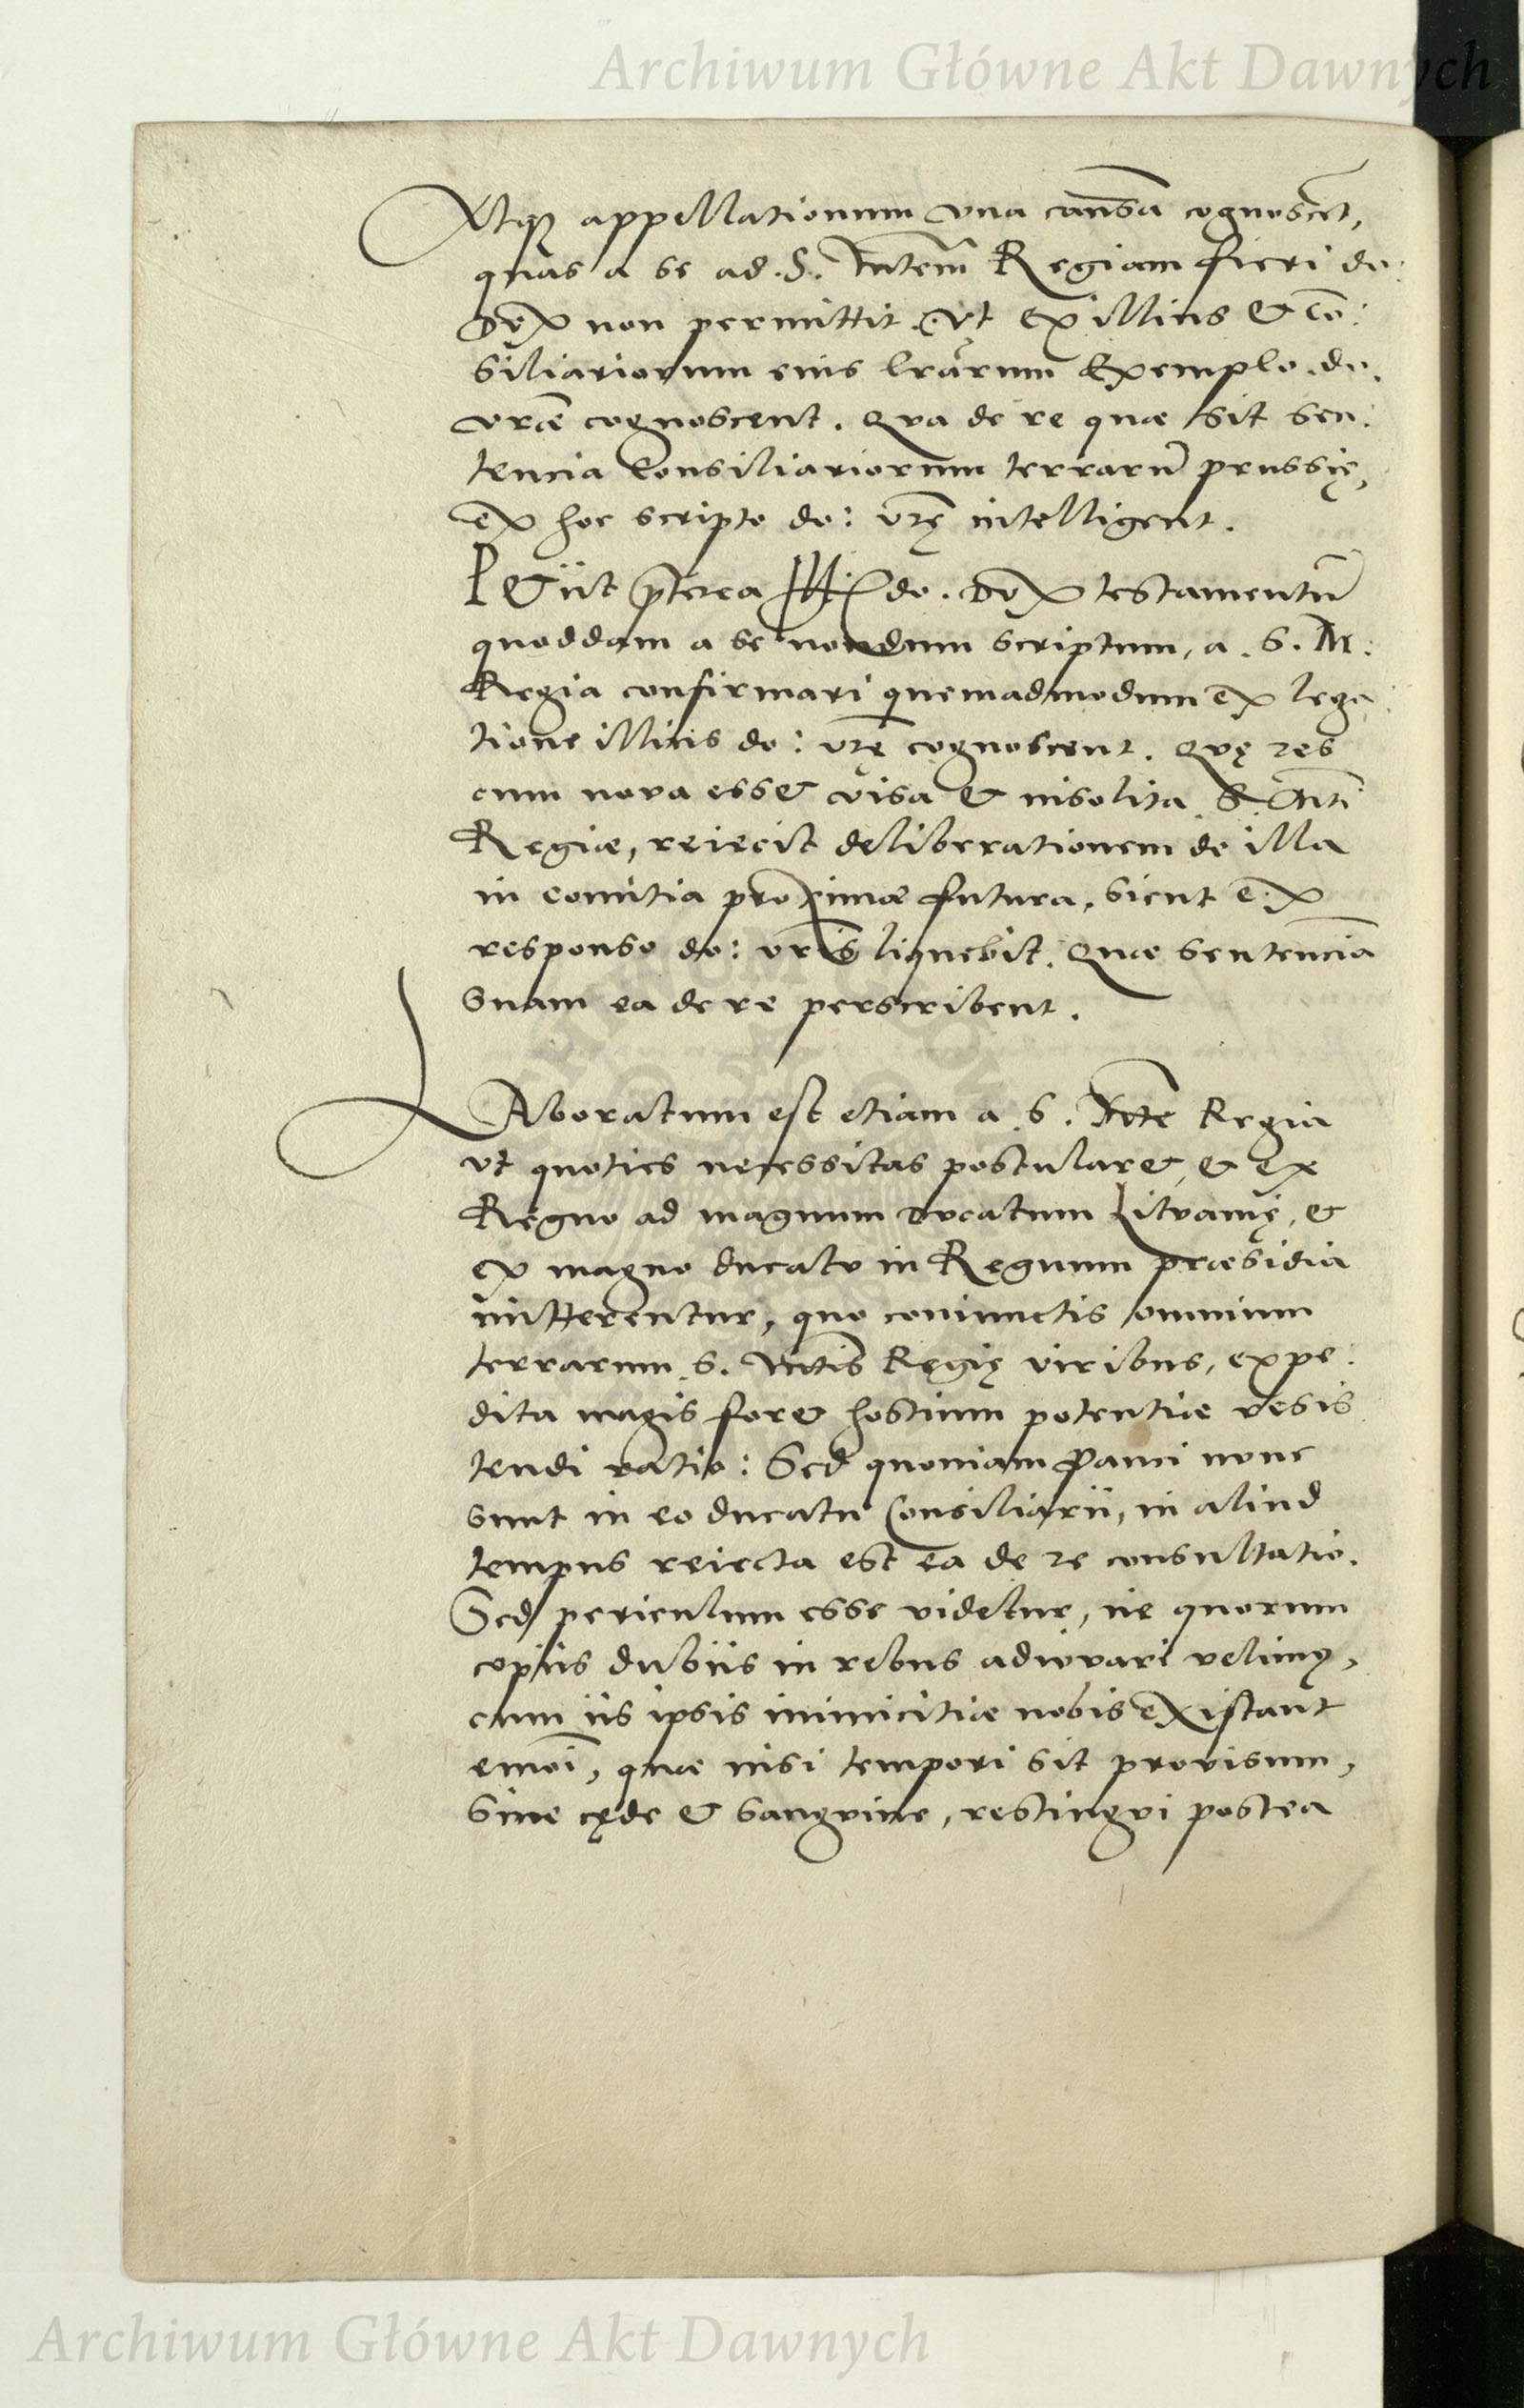 Archiwum Główne Akt Dawnych
Atq3 appellationum una causa cognoscet,
quas a se ad .S. Mtem Regiam fieri do:
Dux non permittit. Ut ex illius & co:
siliariorum eius lrarum Exemplo. do.
vrae cognoscent. Qua de re quae sit sen:
tencia Consiliariorum terraru prussię,
ex hoc scripto do: vrę intelligent.
Petiit pterea Ill: do. Dux testamentu
quoddam a se nondum scriptum, a. S. M:
Regia confirmari quemadmodum ex lega
tione illius do: vrę cognoscent. Quę res
cum nova esset visa & insolita S. Mti
Regiae, reiecit deliberationem de illa
in comitia proxima futura, sicut ex
responso do: vris liquebit. Quae sentencia
suam ea de re perscribent.
Laboratum est etiam a .S. Mte Regia
ut quoties necessitas postularet, & ex
Regno ad magnum Ducatum Lituanię, &
ex magno ducatu in Regnum praesidia
mitterentur, quo coniunctis omnium
terrarum .S. Mtis Regię viribus, expe:
dita magis foret hostium potentiae resis
tendi ratio: Sed quoniam Pauci nunc
sunt in eo ducatu Consiliarii, in aliud
tempus reiecta est ea de re consultatio.
Sed periculum esse videtur, ne quorum
copiis dubiis in rebus adiuvari velimus,
cum iis ipsis inimicitiae nobis existant
emoi, quae nisi tempori sit provisum,
sine cęde & sanguine, restingui postea
Archiwum Główne Akt Dawnych